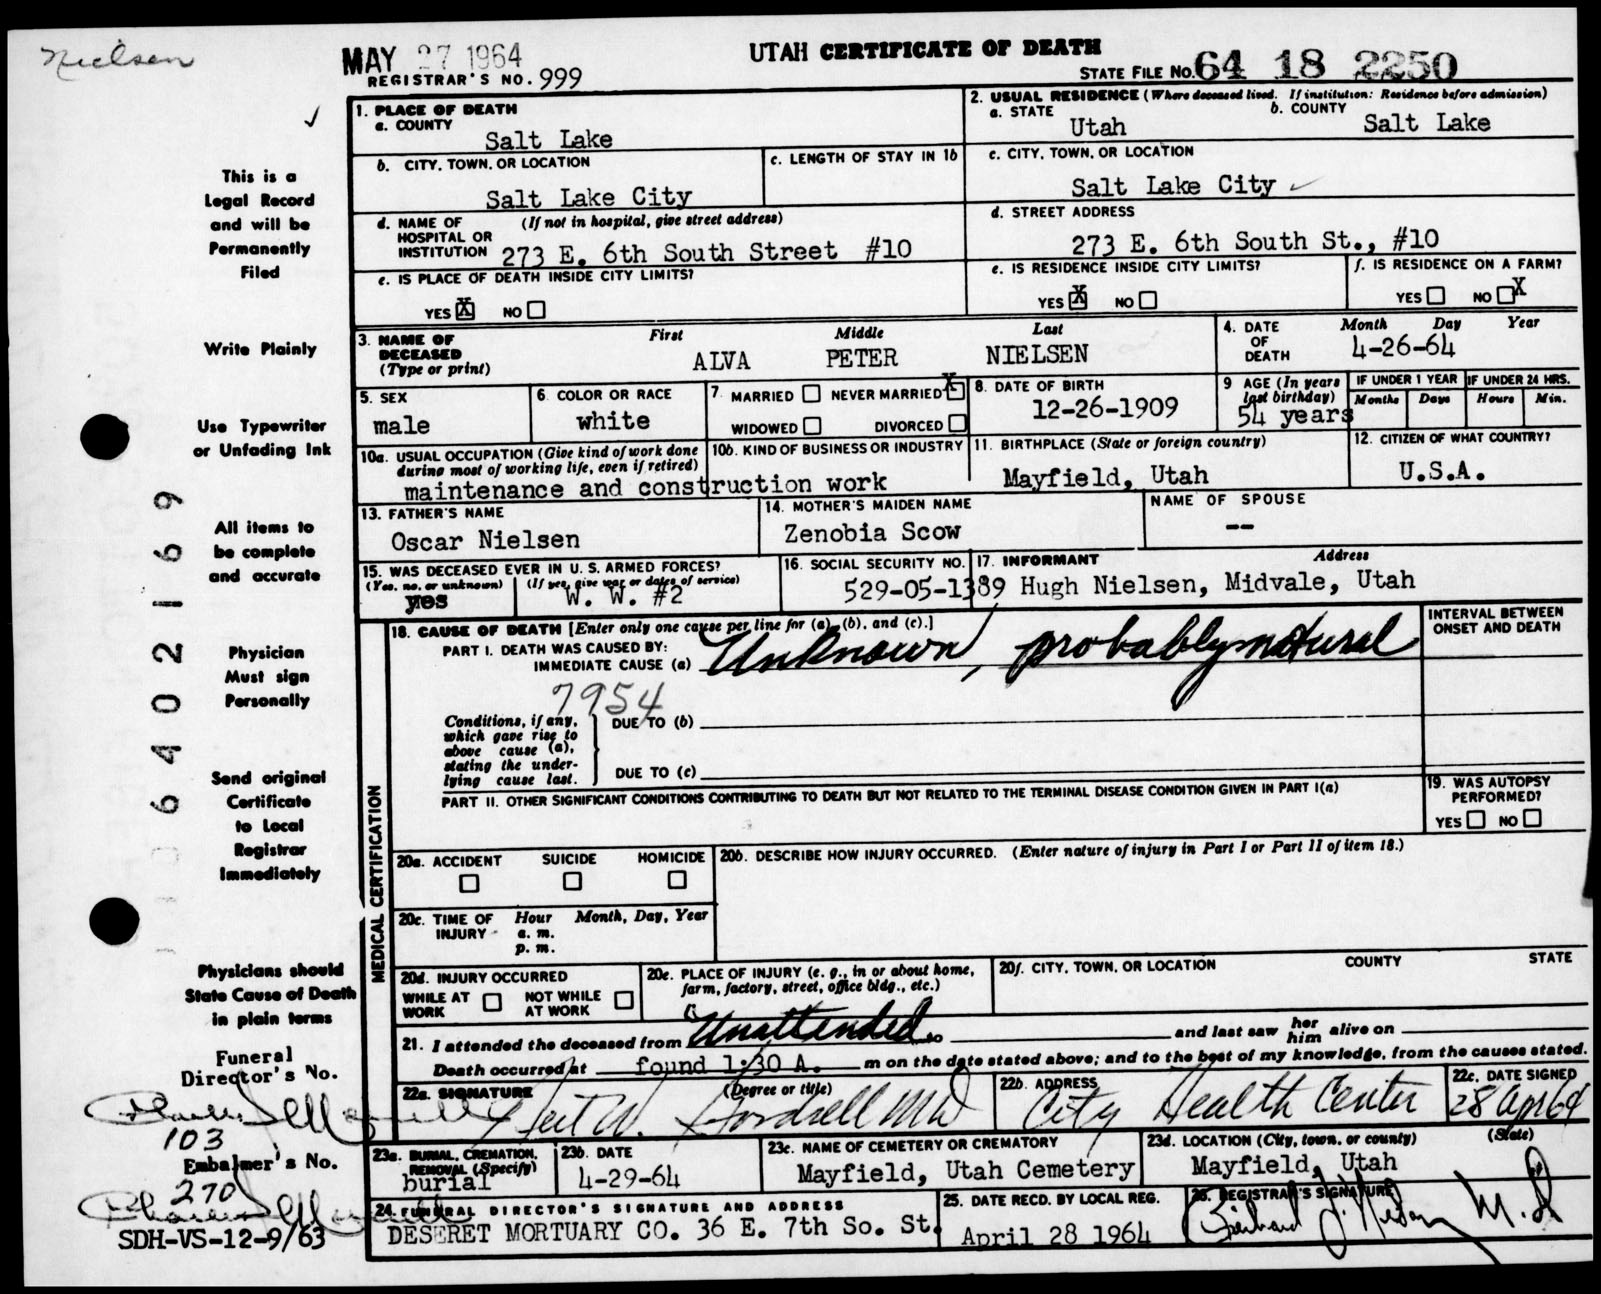 Nielsen
MAY 27 1964
UTAH CERTIFICATE OF DEATH
REGISTRAR'S NO. 999
STATE FILE NO. 64 18 2250
This is a
Legal Record
and will be
Permanently
Filed
Write Plainly
Use Typewriter
or Unfading Ink
All items to
be complete
and accurate
Physician
Must sign
Personally
Send original
Certificate
to Local
Registrar
Immediately
Physicians should
State Cause of Death
in plain terms
Funeral
Director's No.
103
Embalmer's No.
270
SDH-VS-12-9/63
06402169
1. PLACE OF DEATH
a. COUNTY
Salt Lake
2. USUAL RESIDENCE (Where deceased lived. If institution: Residence before admission)
a. STATE
Utah
b. COUNTY
Salt Lake
b. CITY, TOWN, OR LOCATION
Salt Lake City
c. LENGTH OF STAY IN 1b
c. CITY, TOWN, OR LOCATION
Salt Lake City
d. NAME OF (If not in hospital, give street address)
HOSPITAL OR
INSTITUTION 273 E. 6th South Street #10
d. STREET ADDRESS
273 E. 6th South St., #10
e. IS PLACE OF DEATH INSIDE CITY LIMITS?
YES X NO
e. IS RESIDENCE INSIDE CITY LIMITS?
YES X NO
f. IS RESIDENCE ON A FARM?
YES NO X
3. NAME OF
DECEASED
(Type or print)
First Middle Last
ALVA PETER NIELSEN
4. DATE
OF
DEATH
Month Day Year
4-26-64
5. SEX
male
6. COLOR OR RACE
white
7. MARRIED NEVER MARRIED X
WIDOWED DIVORCED
8. DATE OF BIRTH
12-26-1909
9 AGE (In years
last birthday)
54 years
IF UNDER 1 YEAR
Months Days
IF UNDER 24 HRS.
Hours Min.
10a. USUAL OCCUPATION (Give kind of work done
during most of working life, even if retired)
10b. KIND OF BUSINESS OR INDUSTRY
maintenance and construction work
11. BIRTHPLACE (State or foreign country)
Mayfield, Utah
12. CITIZEN OF WHAT COUNTRY?
U.S.A.
13. FATHER'S NAME
Oscar Nielsen
14. MOTHER'S MAIDEN NAME
Zenobia Scow
NAME OF SPOUSE
--
15. WAS DECEASED EVER IN U. S. ARMED FORCES?
(Yes, no, or unknown) (If yes, give war or dates of service)
yes W. W. #2
16. SOCIAL SECURITY NO.
529-05-1389
17. INFORMANT Address
Hugh Nielsen, Midvale, Utah
MEDICAL CERTIFICATION
18. CAUSE OF DEATH [Enter only one cause per line for (a), (b), and (c).]
PART I. DEATH WAS CAUSED BY:
IMMEDIATE CAUSE (a) Unknown, probably natural
7954
Conditions, if any,
which gave rise to
above cause (a),
stating the under-
lying cause last.
DUE TO (b)
DUE TO (c)
INTERVAL BETWEEN
ONSET AND DEATH
PART II. OTHER SIGNIFICANT CONDITIONS CONTRIBUTING TO DEATH BUT NOT RELATED TO THE TERMINAL DISEASE CONDITION GIVEN IN PART I(a)
19. WAS AUTOPSY
PERFORMED?
YES NO
20a. ACCIDENT SUICIDE HOMICIDE
20b. DESCRIBE HOW INJURY OCCURRED. (Enter nature of injury in Part I or Part II of item 18.)
20c. TIME OF
INJURY
Hour Month, Day, Year
a. m.
p. m.
20d. INJURY OCCURRED
WHILE AT
WORK
NOT WHILE
AT WORK
20e. PLACE OF INJURY (e. g., in or about home,
farm, factory, street, office bldg., etc.)
20f. CITY, TOWN, OR LOCATION COUNTY STATE
21. I attended the deceased from Unattended to and last saw her him alive on
Death occurred at found 1:30 A. m on the date stated above; and to the best of my knowledge, from the causes stated.
22a. SIGNATURE (Degree or title)
MD
22b. ADDRESS
City Health Center
22c. DATE SIGNED
28 Apr 64
23a. BURIAL, CREMATION,
REMOVAL (Specify)
burial
23b. DATE
4-29-64
23c. NAME OF CEMETERY OR CREMATORY
Mayfield, Utah Cemetery
23d. LOCATION (City, town, or county) (State)
Mayfield, Utah
24. FUNERAL DIRECTOR'S SIGNATURE AND ADDRESS
DESERET MORTUARY CO. 36 E. 7th So. St.
25. DATE RECD. BY LOCAL REG.
April 28 1964
26. REGISTRAR'S SIGNATURE
M.D.